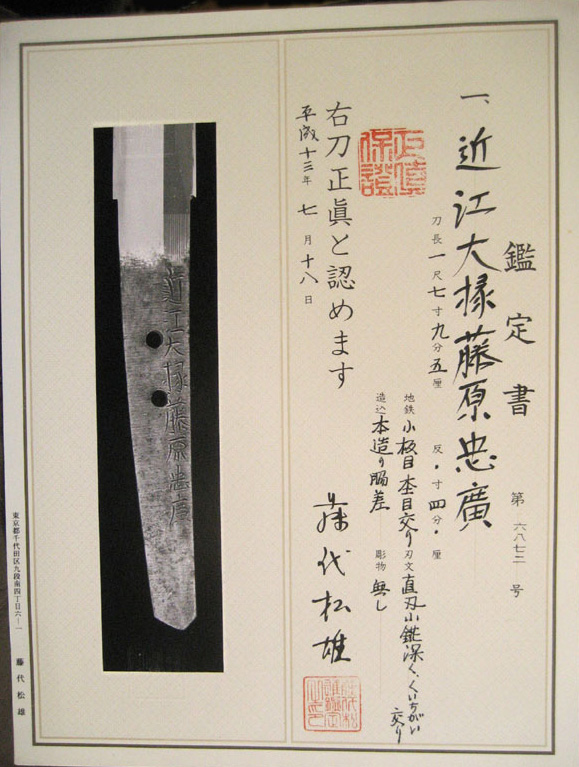 鑑定書
第六八七二号
一、近江大掾藤原忠廣
刀長一尺七寸九分五厘 反・寸四分・厘
地鉄 小板目杢目交り 刃文 直刃小錵深く、くいちがい交り
造込 本造り脇差 彫物 無し
右刀正眞と認めます
平成十三年七月十八日
藤代松雄
近江大掾藤原忠廣
東京都千代田区九段南四丁目六ー一 藤代松雄